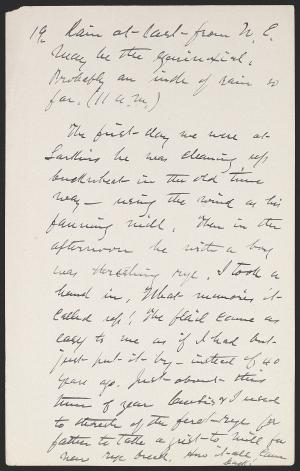 19. Rain at last - from N. E.
May be the Equinoxial.
Probably an inch of rain so
far. (11 a.m.)
The first day we were at
Larkins he was cleaning up
buckwheat in the old time
way - using the wind as his
fanning mill. Then in the
afternoon he with a boy
was threshing rye. I took a
hand in. What memories it
called up! The flail came as
easy to me as if I had but
just put it by - instead of 40
years ago. Just about this
time of year I used
to thresh of the first rye for
father to take a grist to mill for
new rye bread. How it all came
back!